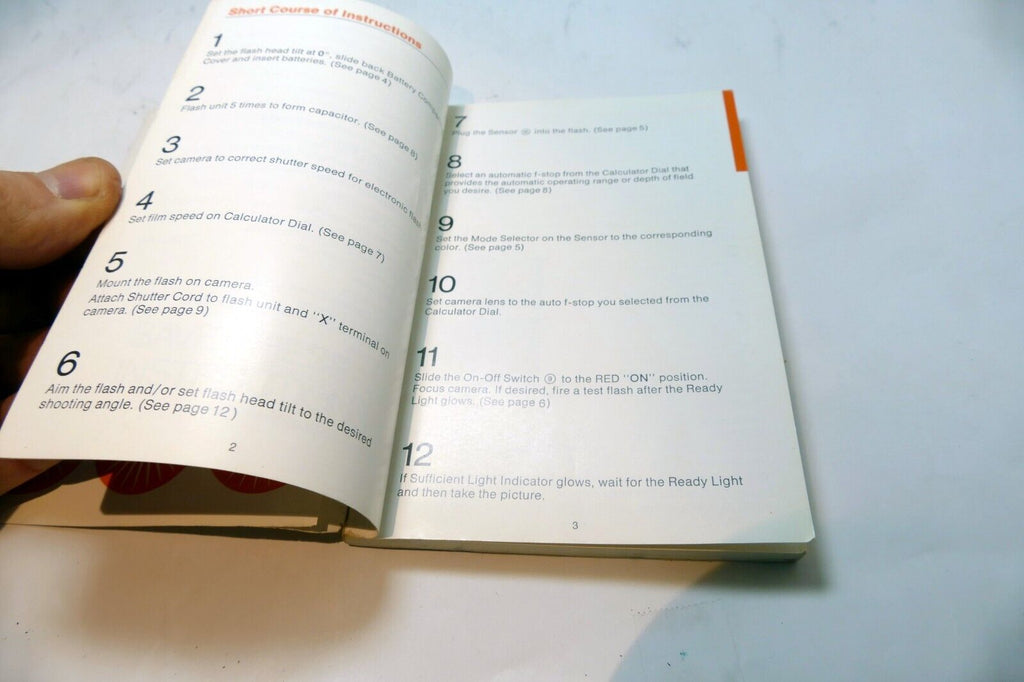 Short Course of Instructions
1
Set the flash head tilt at 0°, slide back Battery
Cover and insert batteries. (See page 4)
2
Flash unit 5 times to form capacitor. (See page 8)
3
Set camera to correct shutter speed for electronic flash.
4
Set film speed on Calculator Dial. (See page 7)
5
Mount the flash on camera.
Attach Shutter Cord to flash unit and "X" terminal on
camera. (See page 9)
6
Aim the flash and/or set flash head tilt to the desired
shooting angle. (See page 12)
2
7
Plug the Sensor into the flash. (See page 5)
8
Select an automatic f-stop from the Calculator Dial that
provides the automatic operating range or depth of field
you desire. (See page 8)
9
Set the Mode Selector on the Sensor to the corresponding
color. (See page 5)
10
Set camera lens to the auto f-stop you selected from the
Calculator Dial.
11
Slide the On-Off Switch ⑨ to the RED "ON" position.
Focus camera. If desired, fire a test flash after the Ready
Light glows. (See page 6)
12
If Sufficient Light Indicator glows, wait for the Ready Light
and then take the picture.
3